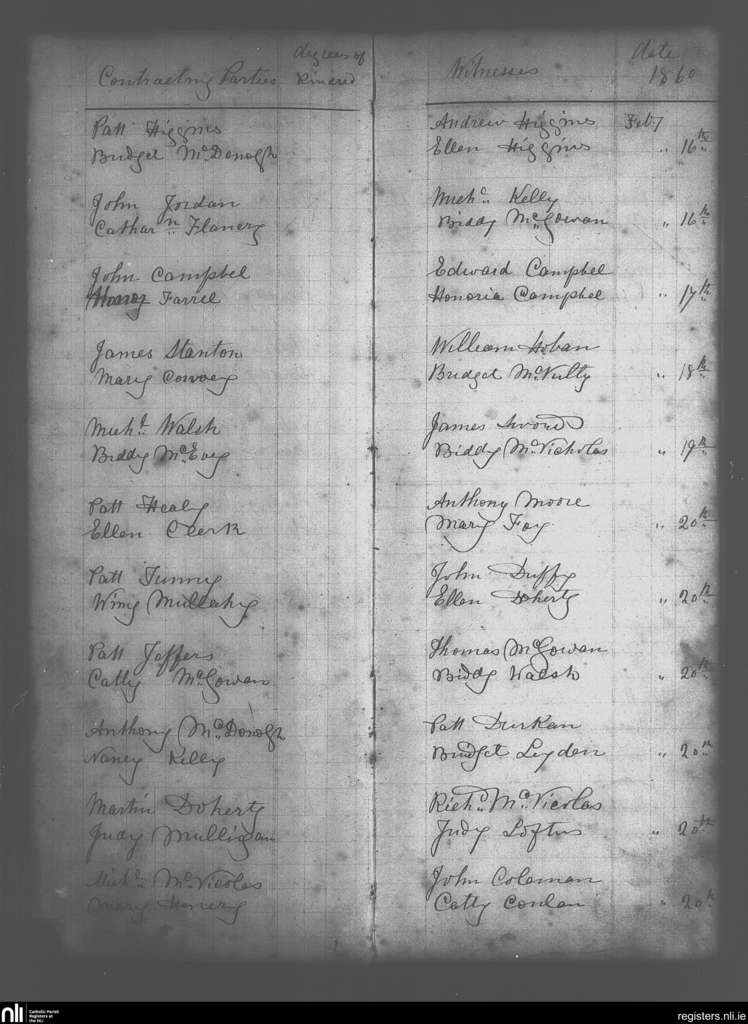 Contracting Parties degrees of Kindred Witnesses date 1860
Patt Higgins Andrew Higgins Feb.7
Bridget McDonogh Ellen Higgins " 16th
John Jordan Michl. Kelly
Catharn Flanery Biddy McGowan " 16th
John Campbel Edward Campbel
Farrel Honoria Campbel " 17th
James Stanton William Hoban
Mary Bridget McNulty " 18th
Michl. Walsh James
Biddy McEvey Biddy McNicholas " 19th
Patt Healy Anthony Moore
Ellen Clerk Mary Foy " 20th
Patt Tunny John Duffy
Winy Mullahy Ellen Doherty " 20th
Patt Jeffers Thomas McGowan
Catty McGowan Biddy Walsh " 20th
Anthony McDonogh Patt Durkan
Nancy Kelly Bridget Leyden " 20th
Martin Doherty Richd. McNicolas
Judy Mulligan Judy Loftus " 20th
Michl. McNicolas John Coleman
Mary Catty Conlan " 20th
nli
Catholic Parish
Registers at
the NLI
registers.nli.ie